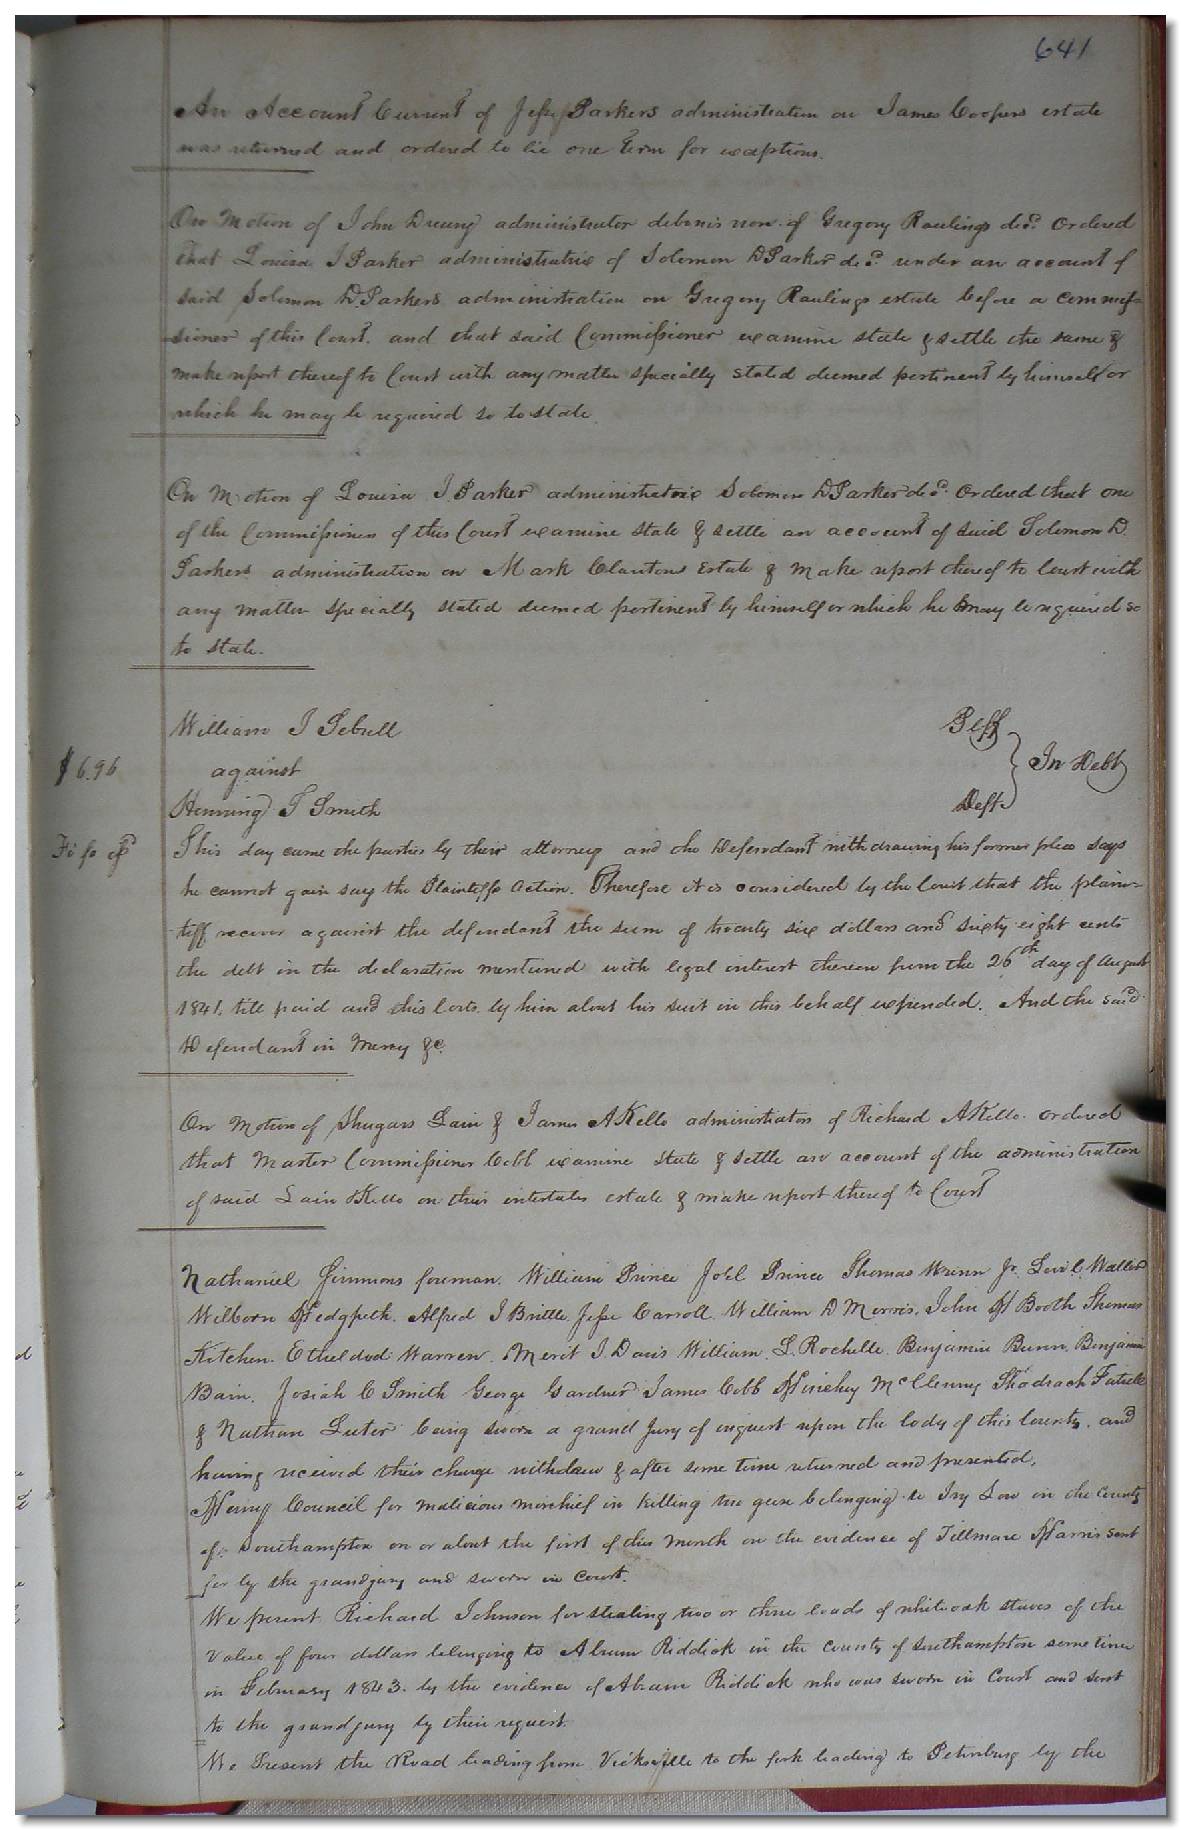 641
An Account Current of Jesse Parkers administration on James Coopers estate
was returned and ordered to lie one Term for exceptions.
On Motion of John Drewry administrator debonis non of Gregory Rawlings decd. Ordered
that Louisa J Parker administratrix of Solomon D Parker decd. under an account of
said Solomon D. Parkers administration on Gregory Rawlings estate before a commis-
sioner of this Court. and that said Commissioner examine state & settle the same &
make report thereof to Court with any matter specially stated deemed pertinent by himself or
which he may be required so to state.
On Motion of Louisa J Parker administratrix Solomon D Parker decd. Ordered that one
of the Commissioners of this Court examine state & settle an account of said Solomon D.
Parkers administration on Mark Clantons Estate & make report thereof to Court with
any matter specially stated deemed pertinent by himself or which he may be required so
to state.
William J Sebrell Plff
$6.96 against In Debt
Henning T Smith Deft.
Fi fa
This day came the parties by their attorneys and the Defendant withdrawing his former plea says
he cannot gain say the Plaintiffs action. Therefore it is considered by the Court that the plain-
tiff recover against the defendant the sum of twenty six dollars and sixty eight cents
the debt in the declaration mentioned with legal interest thereon from the 26th day of August
1841. till paid and his Costs. by him about his suit in this behalf expended. And the said
Defendant in Mercy &c.
On Motion of Shugars Lain & James A Kello administrators of Richard A Kello. ordered
that Master Commissioner Cobb examine state & settle an account of the administration
of said Lain & Kello on their intestates estate & make report thereof to Court
Nathaniel Simmons foreman. William Prince Joel Prince Thomas Wrenn Jr. Levi C. Waller
Wilborn Hedgpeth. Alfred J Brittle Jesse Carroll. William D Morris. John H Booth Thomas
Kitchen. Etheldred Warren. Merit J. Davis William. L. Rochelle. Benjamin Bunn. Benjamin
Bain. Josiah C Smith George Gardner James Cobb Hinchey McClenny Shadrach Futrell
& Nathan Luter being sworn a grand Jury of inquest upon the body of this County. and
having received their charge withdrew & after some time returned and presented.
Henry Council for malicious mischief in killing two geese belonging to Low in the County
of Southampton on or about the first of this month on the evidence of Tillmare Harris sent
for by the grandjury and sworn in court.
We present Richard Johnson for stealing two or three loads of whiteoak staves of the
value of four dollars belonging to Abram Riddick in the county of Southampton some time
in February 1843. by the evidence of Abram Riddick who was sworn in Court and sent
to the grandjury by their request.
We Present the Road leading from Vicksville to the fork leading to Petersburg by the